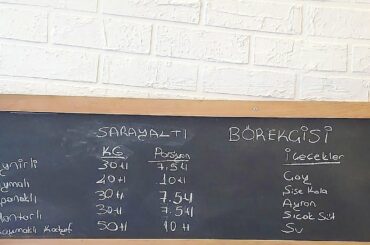 SARAYALTI BÖREKÇİSİ
KG Porsiyon İçecekler
ynirli 30 tl 7.5 tl Çay
ymalı 40 tl 10 tl Şişe Kola
panaklı 30 tl 7.5 tl Ayran
antarlı 30 tl 7.5 tl Sıcak Süt
50 tl 10 tl Su